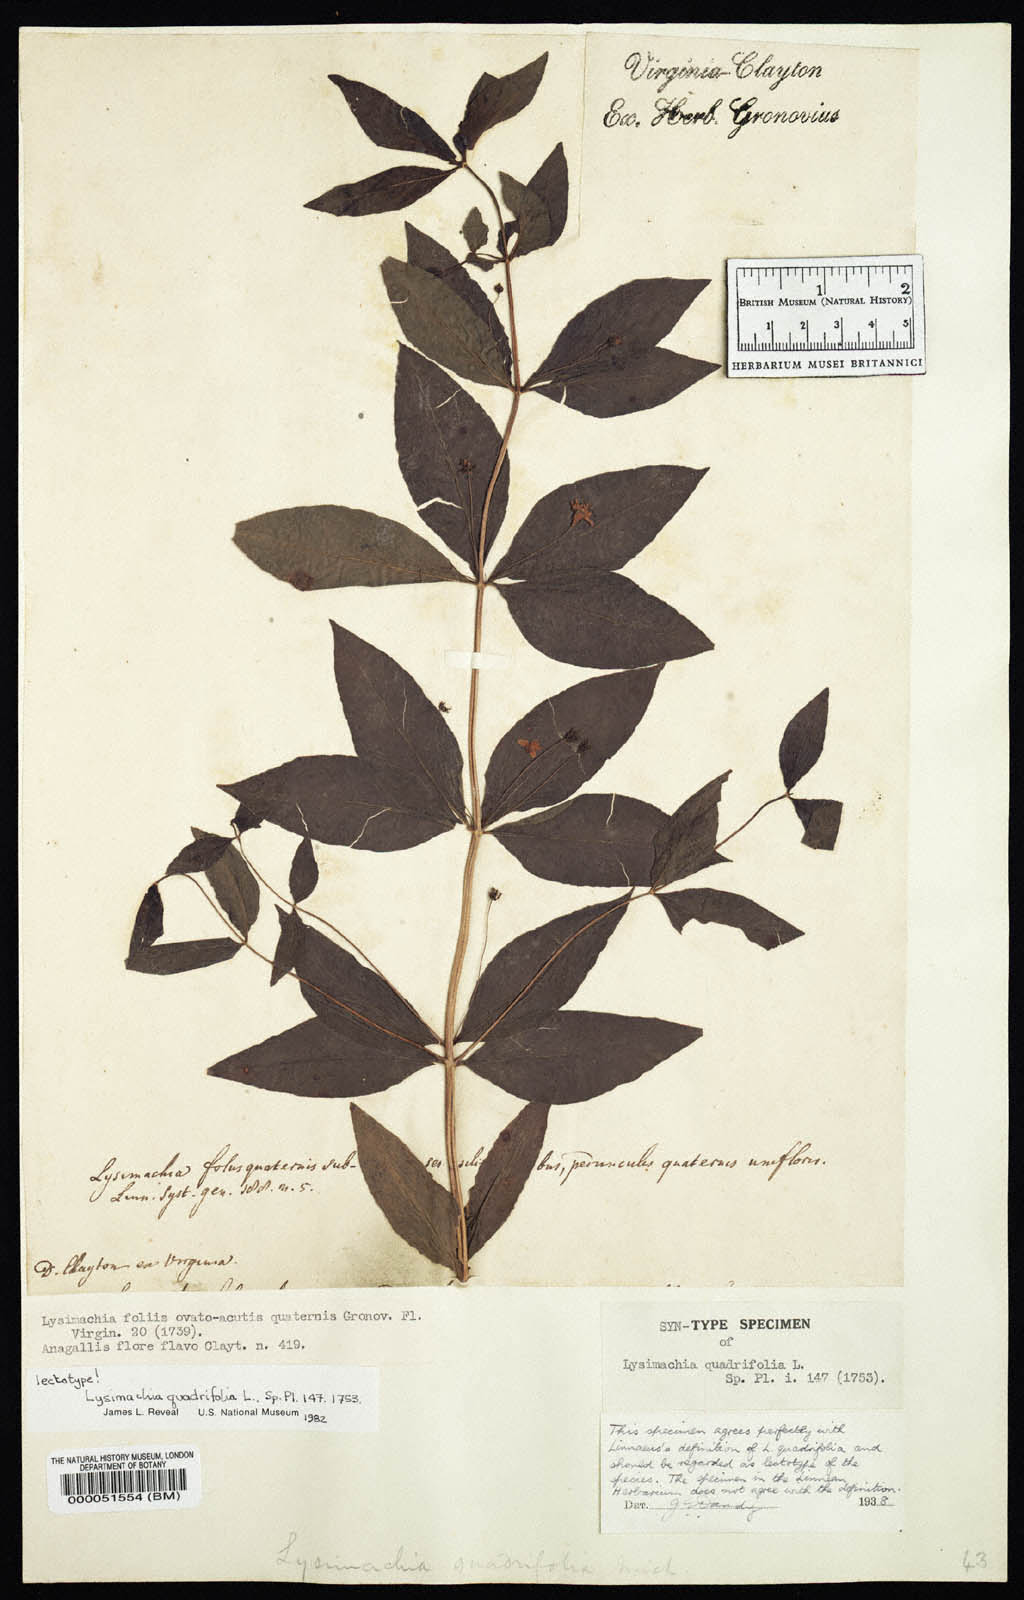 Virginia-Clayton
Ex. Herb. Gronovius
1 2
BRITISH MUSEUM (NATURAL HISTORY)
1 2 3 4 5
HERBARIUM MUSEI BRITANNICI
Lysimachia foliis quaternis sub- ses bus, pedunculis quaternis unifloris.
Linn. Syst. gen. 188. n. 5.
D. Clayton ex Virginia.
Lysimachia foliis ovato-acutis quaternis Gronov. Fl.
Virgin. 20 (1739).
Anagallis flore flavo Clayt. n. 419.
lectotype!
Lysimachia quadrifolia L., Sp. Pl. 147. 1753.
James L. Reveal U.S. National Museum 1982
THE NATURAL HISTORY MUSEUM, LONDON
DEPARTMENT OF BOTANY
000051554 (BM)
SYN-TYPE SPECIMEN
of
Lysimachia quadrifolia L.
Sp. Pl. i. 147 (1753).
This specimen agrees perfectly with
Linnaeus's definition of L. quadrifolia and
should be regarded as lectotype of the
species. The specimen in the Linnean
Herbarium does not agree with the definition.
Det. 1938
Lysimachia quadrifolia
43